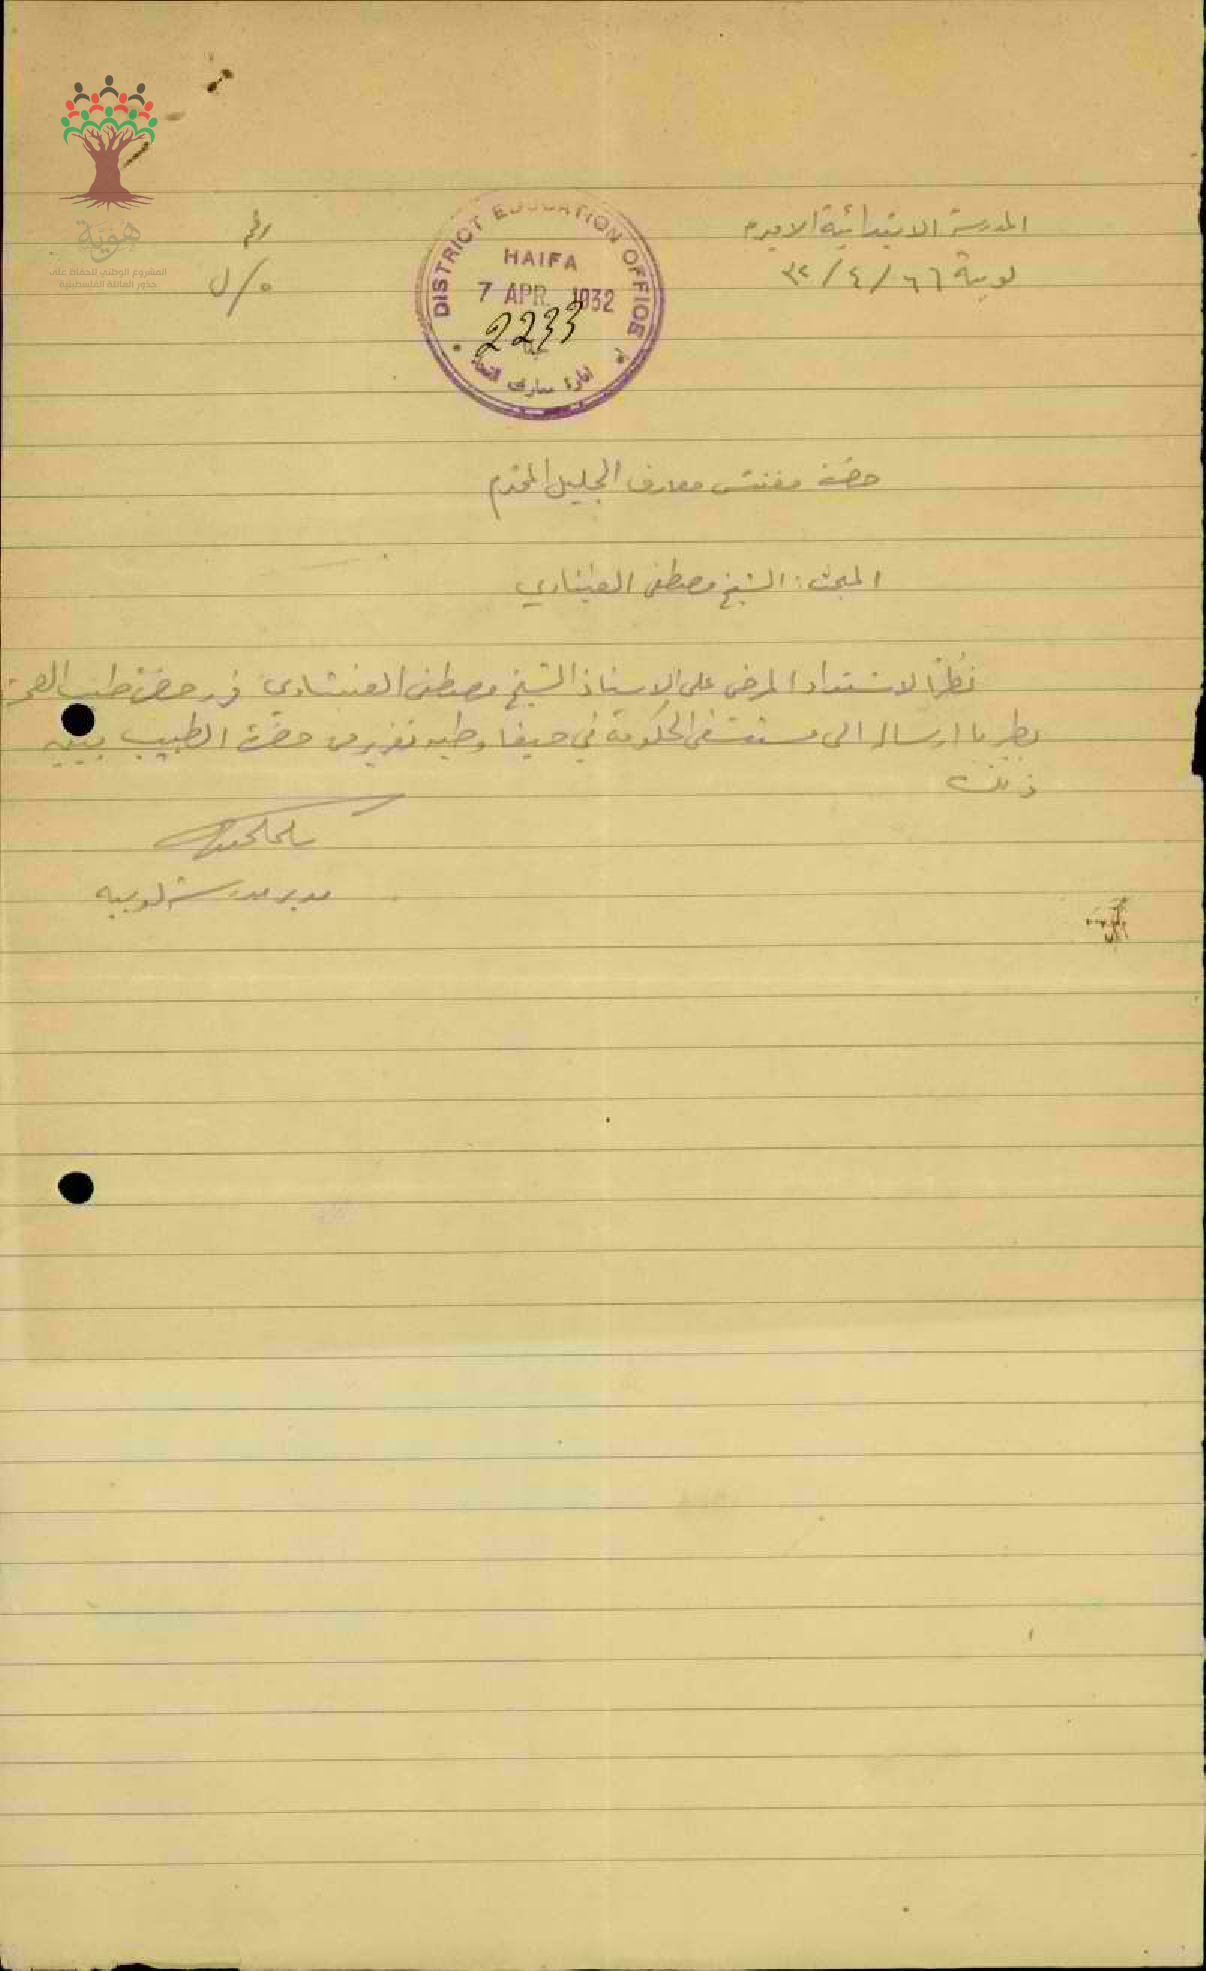 المدرسة الابتدائية الاميرية
لوبية ٦ / ٤ / ٣٢
رقم
ل/٥
DISTRICT EDUCATION OFFICE
HAIFA
7 APR 1932
2233
ادارة معارف
هوية
المشروع الوطني للحفاظ على
جذور العائلة الفلسطينية
حضرة مفتش معارف الجليل المحترم
المبحث: الشيخ مصطفى
نظراً لاشتداد المرض على الاستاذ الشيخ مصطفى قرر حضرة طبيب الصحة
بطبريا ارساله الى مستشفى الحكومة في حيفا وطيه تقرير من حضرة الطبيب يبين
ذلك
مدير مدرسة لوبيه